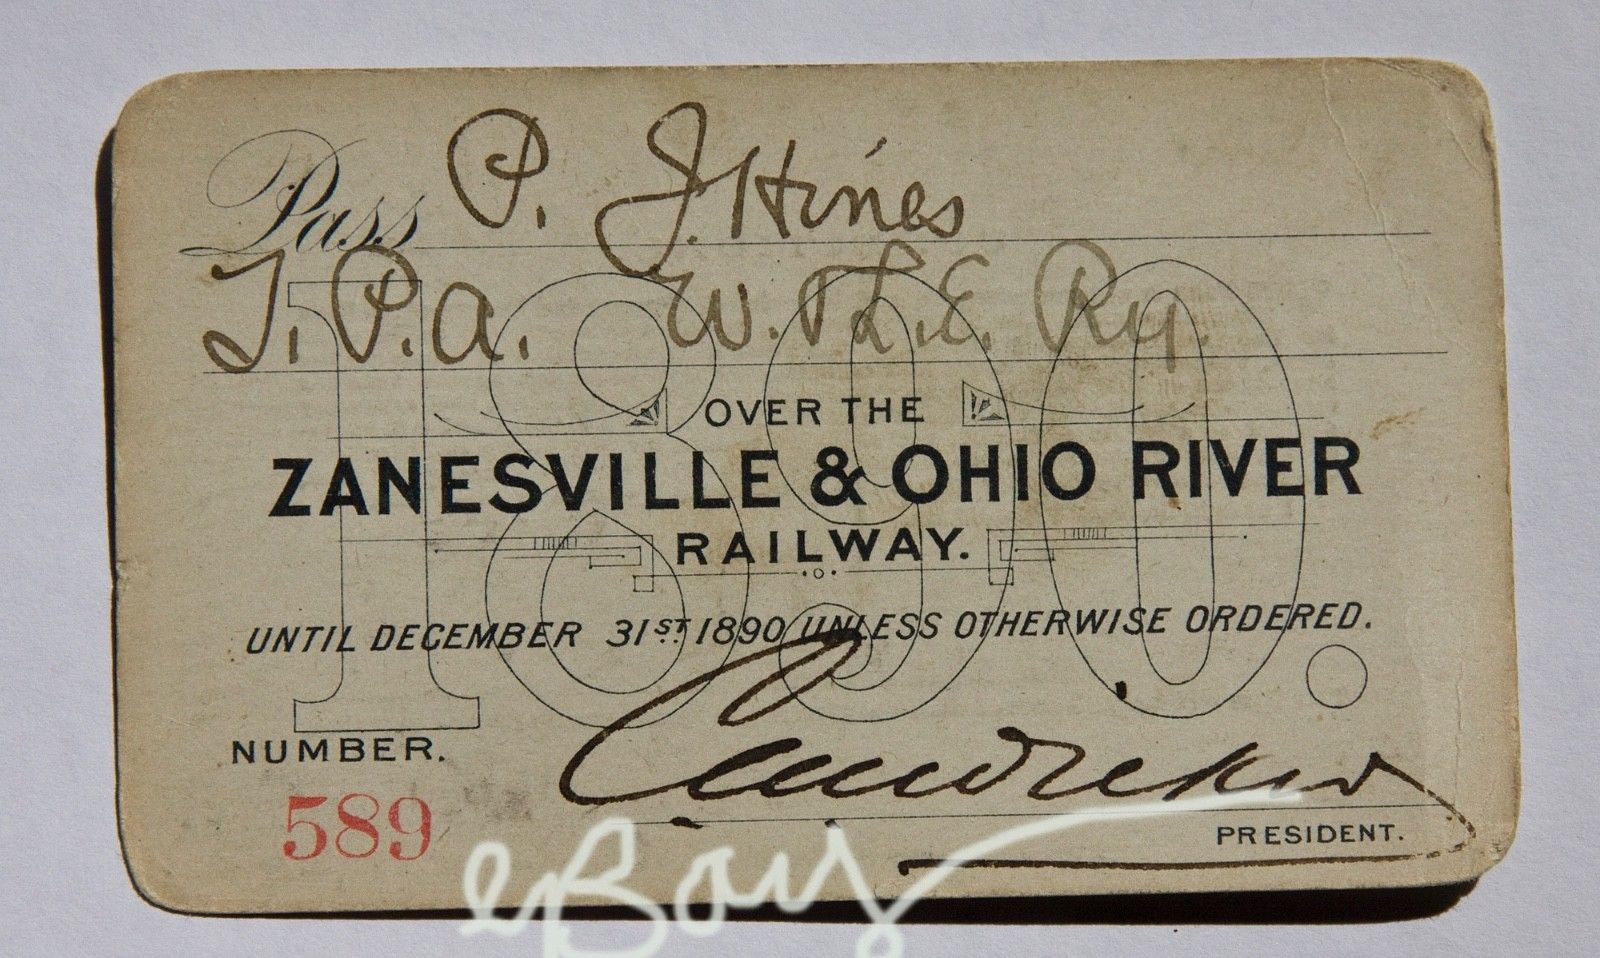 Pass P. J. Hines
T. P. a. W. & L. E. Ry.
1890.
OVER THE
ZANESVILLE & OHIO RIVER
RAILWAY.
UNTIL DECEMBER 31ST 1890 UNLESS OTHERWISE ORDERED.
NUMBER.
589
PRESIDENT.
eBay